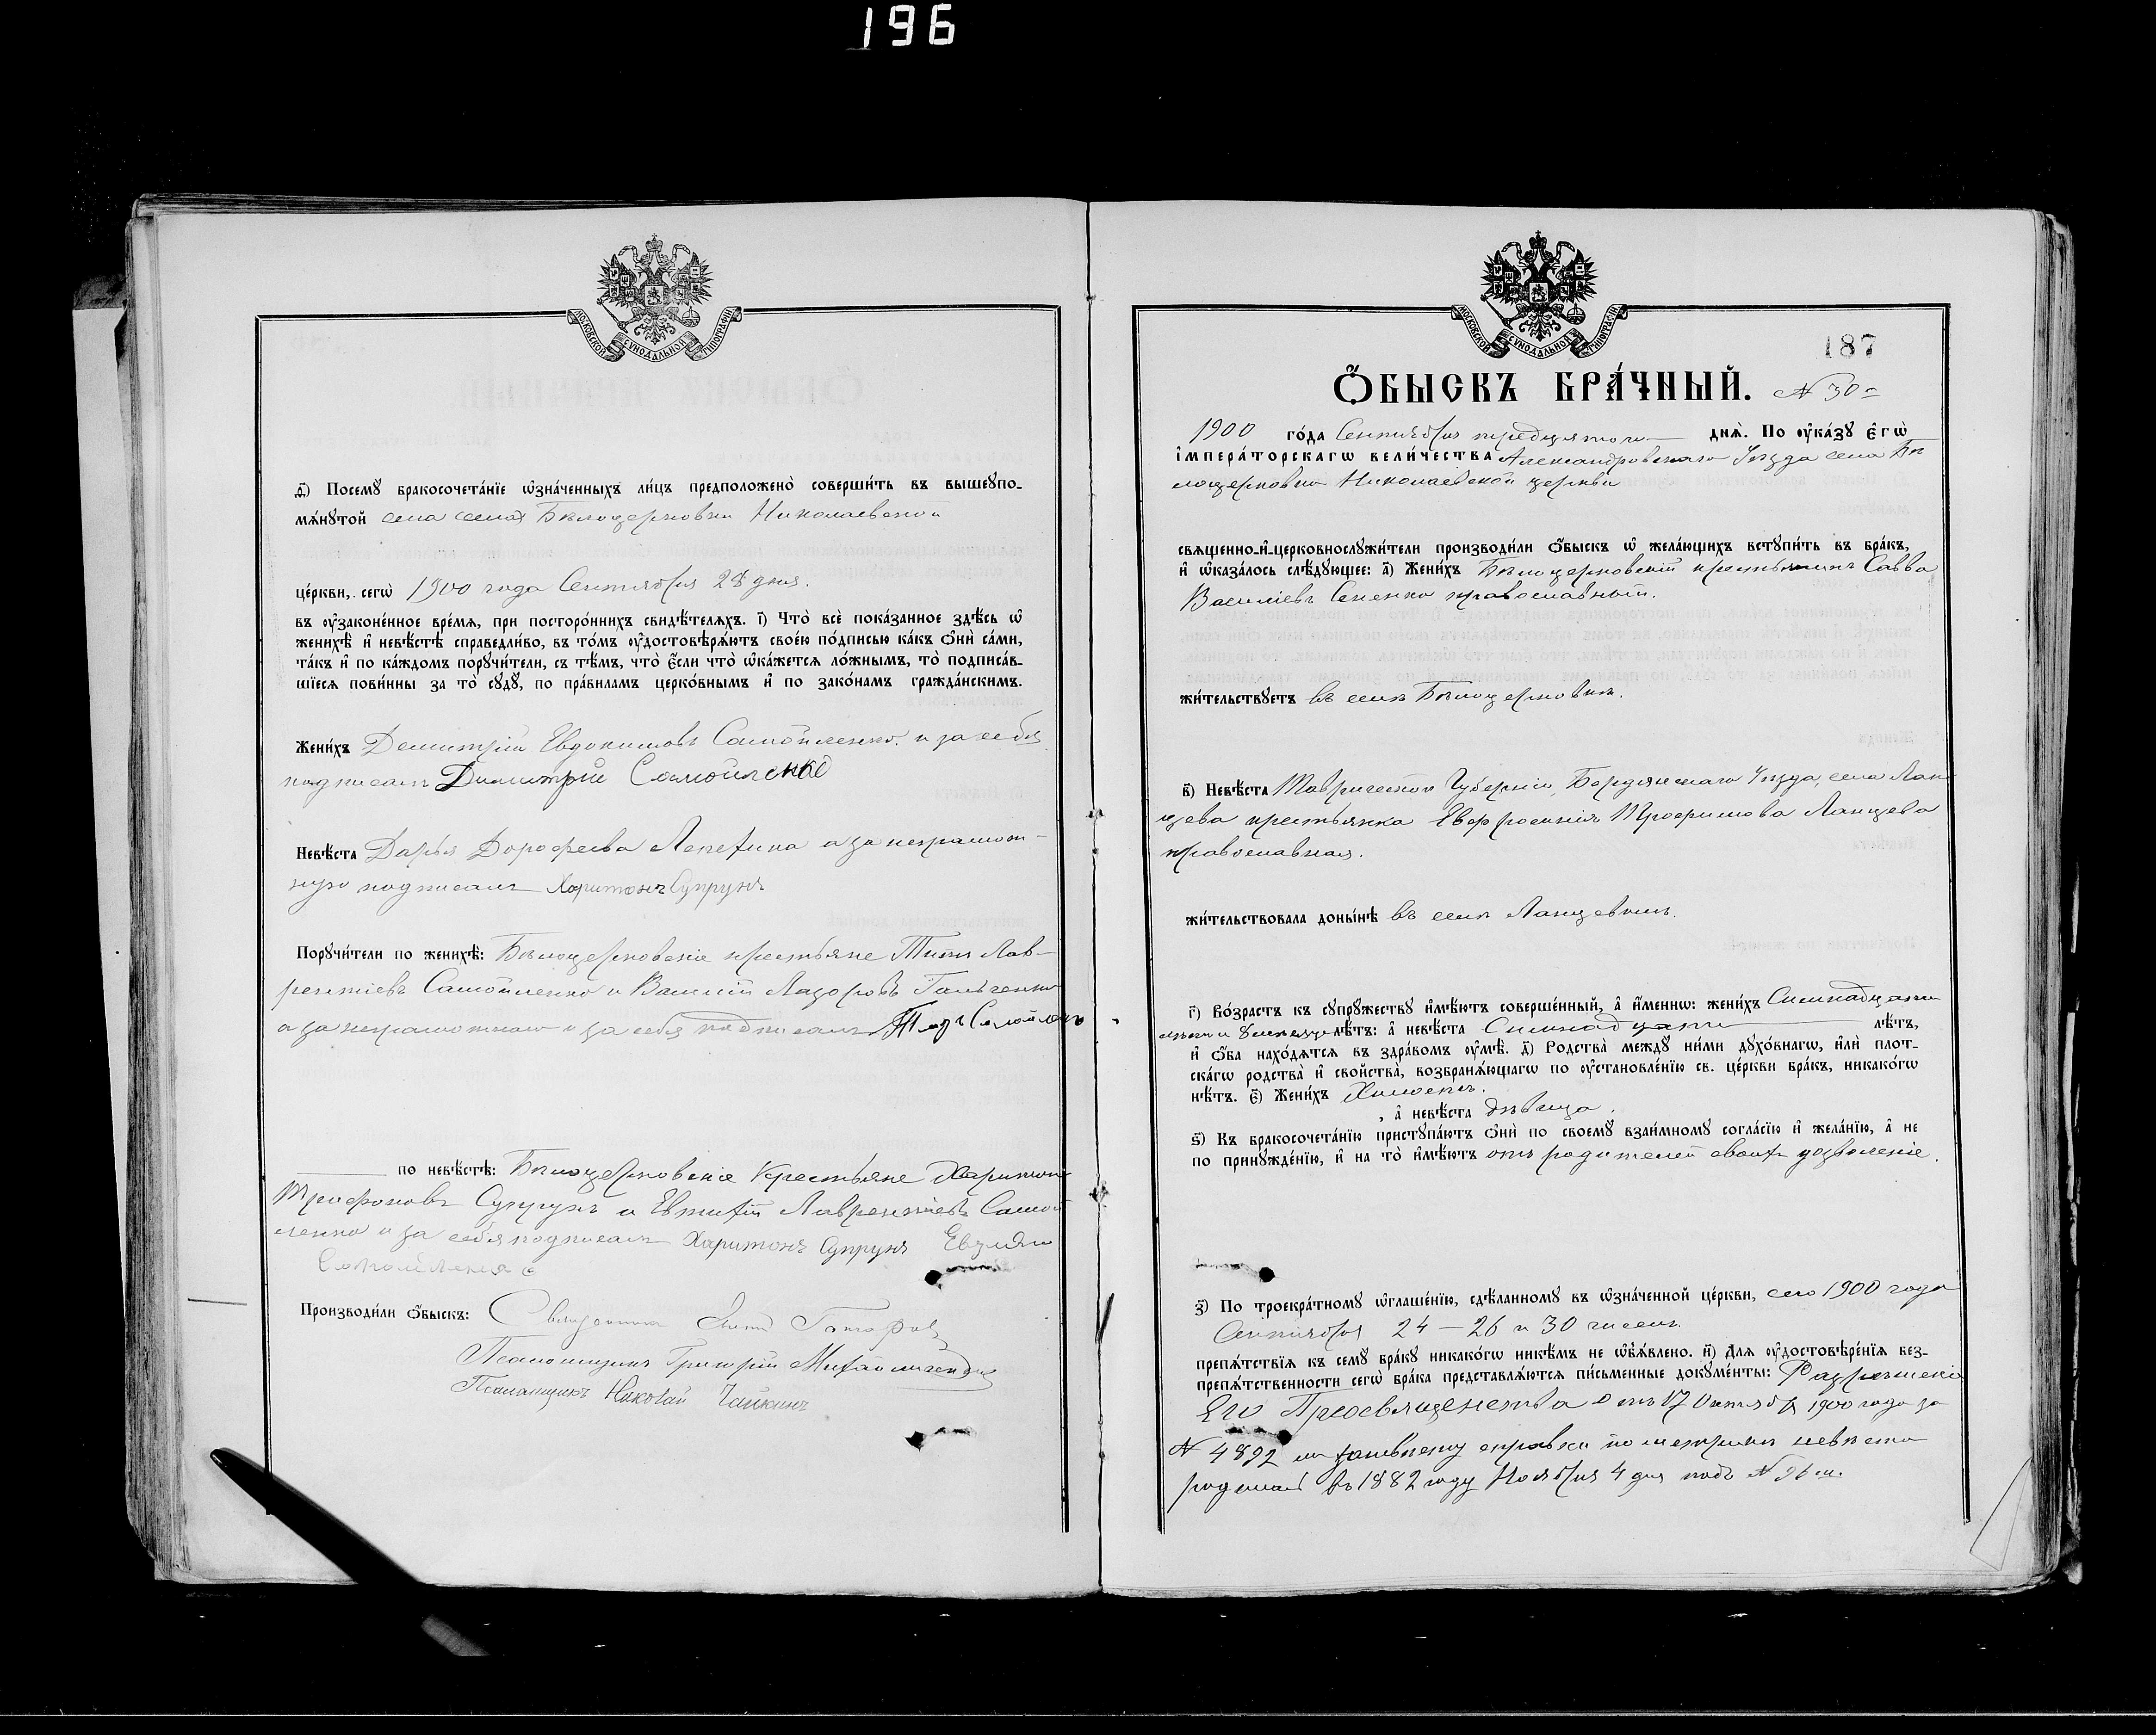 196
МОСКОВСКОЙ СѴНОДАЛЬНОЙ ТИПОГРАФІИ
д҃) Посемꙋ бракосочета́нїе ѡ҆зна́ченныхъ ли́цъ предположено̀ соверши́ть въ вышеꙋпо-
мѧ́нꙋтой села Бѣлоцерковки Николаевской
це́ркви, сегѡ̀ 1900 года Сентября 28 дня.
въ ᲂу҆зако́ненное вре́мѧ, при посторо́ннихъ свидѣ́телѧхъ. і҃) Что̀ всѐ пока́занное здѣ́сь ѡ҆
женихѣ̀ и҆ невѣ́стѣ справедли́во, въ то́мъ ᲂу҆достовѣрѧ́ютъ свое́ю по́дписью ка́къ ѻ҆нѝ са́ми,
та́къ и҆ по ка́ждомъ порꙋчи́тели, съ тѣ́мъ, что̀ є҆́сли что̀ ѡ҆ка́жетсѧ ло́жнымъ, то̀ подписа́в-
шїесѧ пови́нны за то̀ сꙋдꙋ̀, по пра́виламъ церко́внымъ и҆ по зако́намъ гражда́нскимъ.
Жени́хъ Димитрій Евдокимовъ Самойленко и за себя
подписалъ Димитрій Самойленко
Невѣ́ста Дарья Дорофеева Лепехина а за неграмот-
ную подписалъ Харитонъ Супрунъ
Порꙋчи́тели по женихѣ̀: Бѣлоцерковскіе крестьяне Титъ Лав-
рентіевъ Самойленко и Василій Лазоровъ Гальченко
а за неграмотнаго и за себя подписалъ Титъ Самойленко
по невѣ́стѣ: Бѣлоцерковскіе Крестьяне Харитонъ
Трифоновъ Супрунъ и Евтихій Лаврентіевъ Самой
ленко и за себя подписалъ Харитонъ Супрунъ
Самойленко
Производи́ли ѻ҆́быскъ: Священникъ
Псаломщикъ Григорій
Псаломщикъ Николай Чайкинъ
МОСКОВСКОЙ СѴНОДАЛЬНОЙ ТИПОГРАФІИ
187
Ѻ҆́БЫСКЪ БРА́ЧНЫЙ. № 30
1900 го́да Сентября тридцятого днѧ̀. По ᲂу҆ка́зꙋ Є҆гѡ̀
і҆мпера́торскагѡ вели́чества Александровскаго Уѣзда села Бѣ
лоцерковки Николаевской церкви
свѧщенно-и҆-церковнослꙋжи́тели производи́ли ѻ҆́быскъ ѡ҆ жела́ющихъ встꙋпи́ть въ бра́къ,
и҆ ѡ҆каза́лось слѣ́дꙋющее: а҃) Жени́хъ Бѣлоцерковскій крестьянинъ Савва
Василіевъ Сененко православный.
жи́тельствꙋетъ въ селѣ Бѣлоцерковкѣ.
в҃) Невѣ́ста Таврической Губерніи, Бердянскаго Уѣзда, села Лан
цева крестьянка Евфросинія Трофимова Ланцева
православная.
жи́тельствовала доны́нѣ въ селѣ Ланцевкѣ.
г҃) Во́зрастъ къ сꙋпрꙋ́жествꙋ и҆мѣ́ютъ соверше́нный, а҆ и҆́меннѡ: жени́хъ Симнадцати
лѣ́тъ: а҆ невѣ́ста Симнадцати лѣ́тъ,
и҆ ѻ҆́ба нахо́дѧтсѧ въ здра́вомъ ᲂу҆мѣ̀. д҃) Родства̀ междꙋ ни́ми дꙋхо́внагѡ, и҆лѝ плот-
ска́гѡ родства̀ и҆ сво́йства, возбранѧ́ющагѡ по ᲂу҆становле́нїю св. це́ркви бра́къ, никако́гѡ
нѣ́тъ. є҃) Жени́хъ Холостъ.
, а҆ невѣ́ста дѣвица.
ѕ҃) Къ бракосочета́нїю пристꙋпа́ютъ ѻ҆нѝ по своемꙋ̀ взаи́мномꙋ согла́сїю и҆ жела́нїю, а҆ не
по принꙋжде́нїю, и҆ на то̀ и҆мѣ́ютъ отъ родителей своихъ дозволеніе.
з҃) По троекра́тномꙋ ѡ҆глаше́нїю, сдѣ́ланномꙋ въ ѡ҆зна́ченной це́ркви, сего 1900 года
Сентября 24 – 26 и 30 числъ
препѧ́тствїѧ къ семꙋ̀ бра́кꙋ никако́гѡ никѣ́мъ не ѡ҆б̾ѧ́влено. и҃) Длѧ ᲂу҆достовѣре́нїѧ без-
препѧ́тственности сегѡ̀ бра́ка представлѧ́ютсѧ пи́сьменные докꙋме́нты: Разрѣшеніе
Его Преосвященства отъ 17 Октяб 1900 года за
№ 4892 справки по метрикѣ невѣста
родилась въ 1882 году Ноября 4 дня подъ №